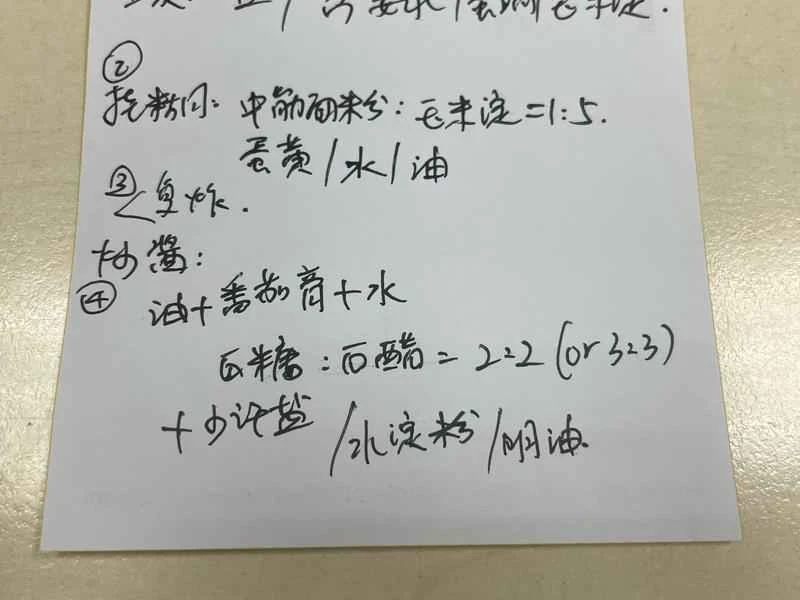 ②
挂粉间: 中筋面粉:玉米淀=1:5.
蛋黄/水/油
③
复炸.
炒酱:
④
油+番茄膏+水
白糖:白醋=2:2(or 3:3)
+少许盐/水淀粉/明油.